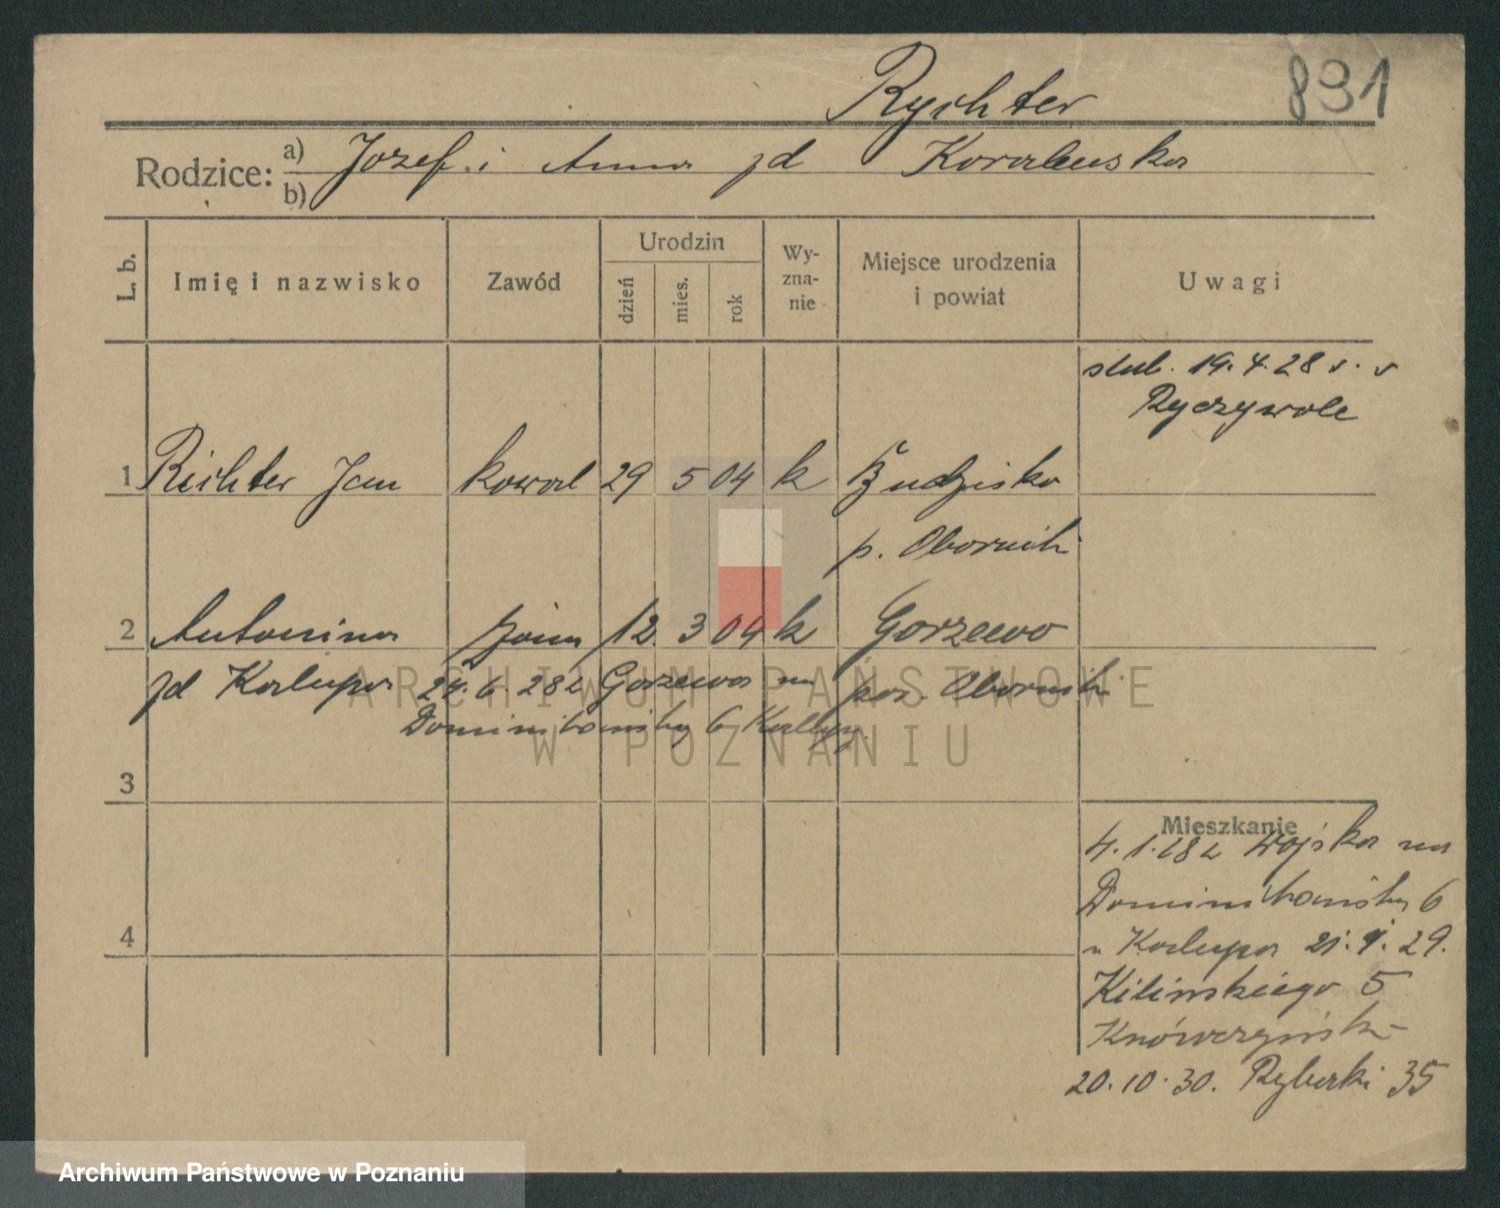 Rychter 831
Rodzice: a) b) Józef i Anna zd
L. b. Imię i nazwisko Zawód Urodzin dzień mies. rok Wyznanie Miejsce urodzenia i powiat Uwagi
ślub. 19.4.28 r. v
Ryczywole
1 Richter Jan kowal 29 5 04 k Budzisko
p. Obornik
2 Antonina żona 12 3 04 k Gorzewo
zd Kalupa 24.6.28 z Gorzewa na pow. Obornik
Dominikańską 6
3
Mieszkanie
4.1.28 z wojska na
Dominikańską 6
4
u Kalupa 21. 29.
Kilińskiego 5
20.10.30. Rybaki 35
ARCHIWUM PAŃSTWOWE
W POZNANIU
Archiwum Państwowe w Poznaniu